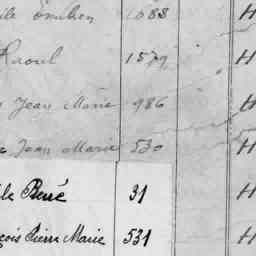 ile Émilien 1688 H
Raoul 1579 H
Jean Marie 986 H
Jean Marie 530 H
le Berré 31 H
çois Pierre Marie 531 H